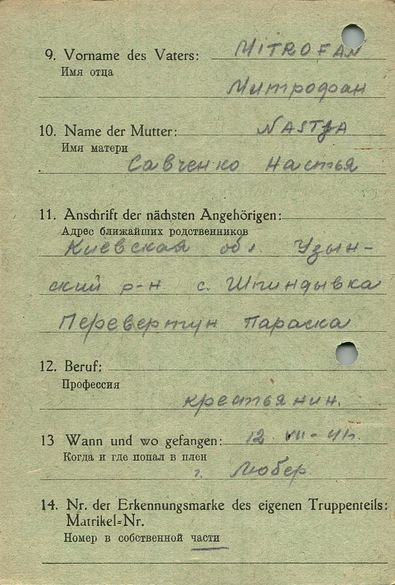 9. Vorname des Vaters: MITROFAN
Имя отца
Митрофан
10. Name der Mutter: NASTJA
Имя матери
Савченко Настья
11. Anschrift der nächsten Angehörigen:
Адрес ближайших родственников
Киевская обл Узын-
ский р-н с. Шпиндывка
Перевертун Параска
12. Beruf:
Профессия
крестьянин.
13 Wann und wo gefangen: 12 VII-41г.
Когда и где попал в плен
г. Любер
14. Nr. der Erkennungsmarke des eigenen Truppenteils:
Matrikel=Nr.
Номер в собственной части